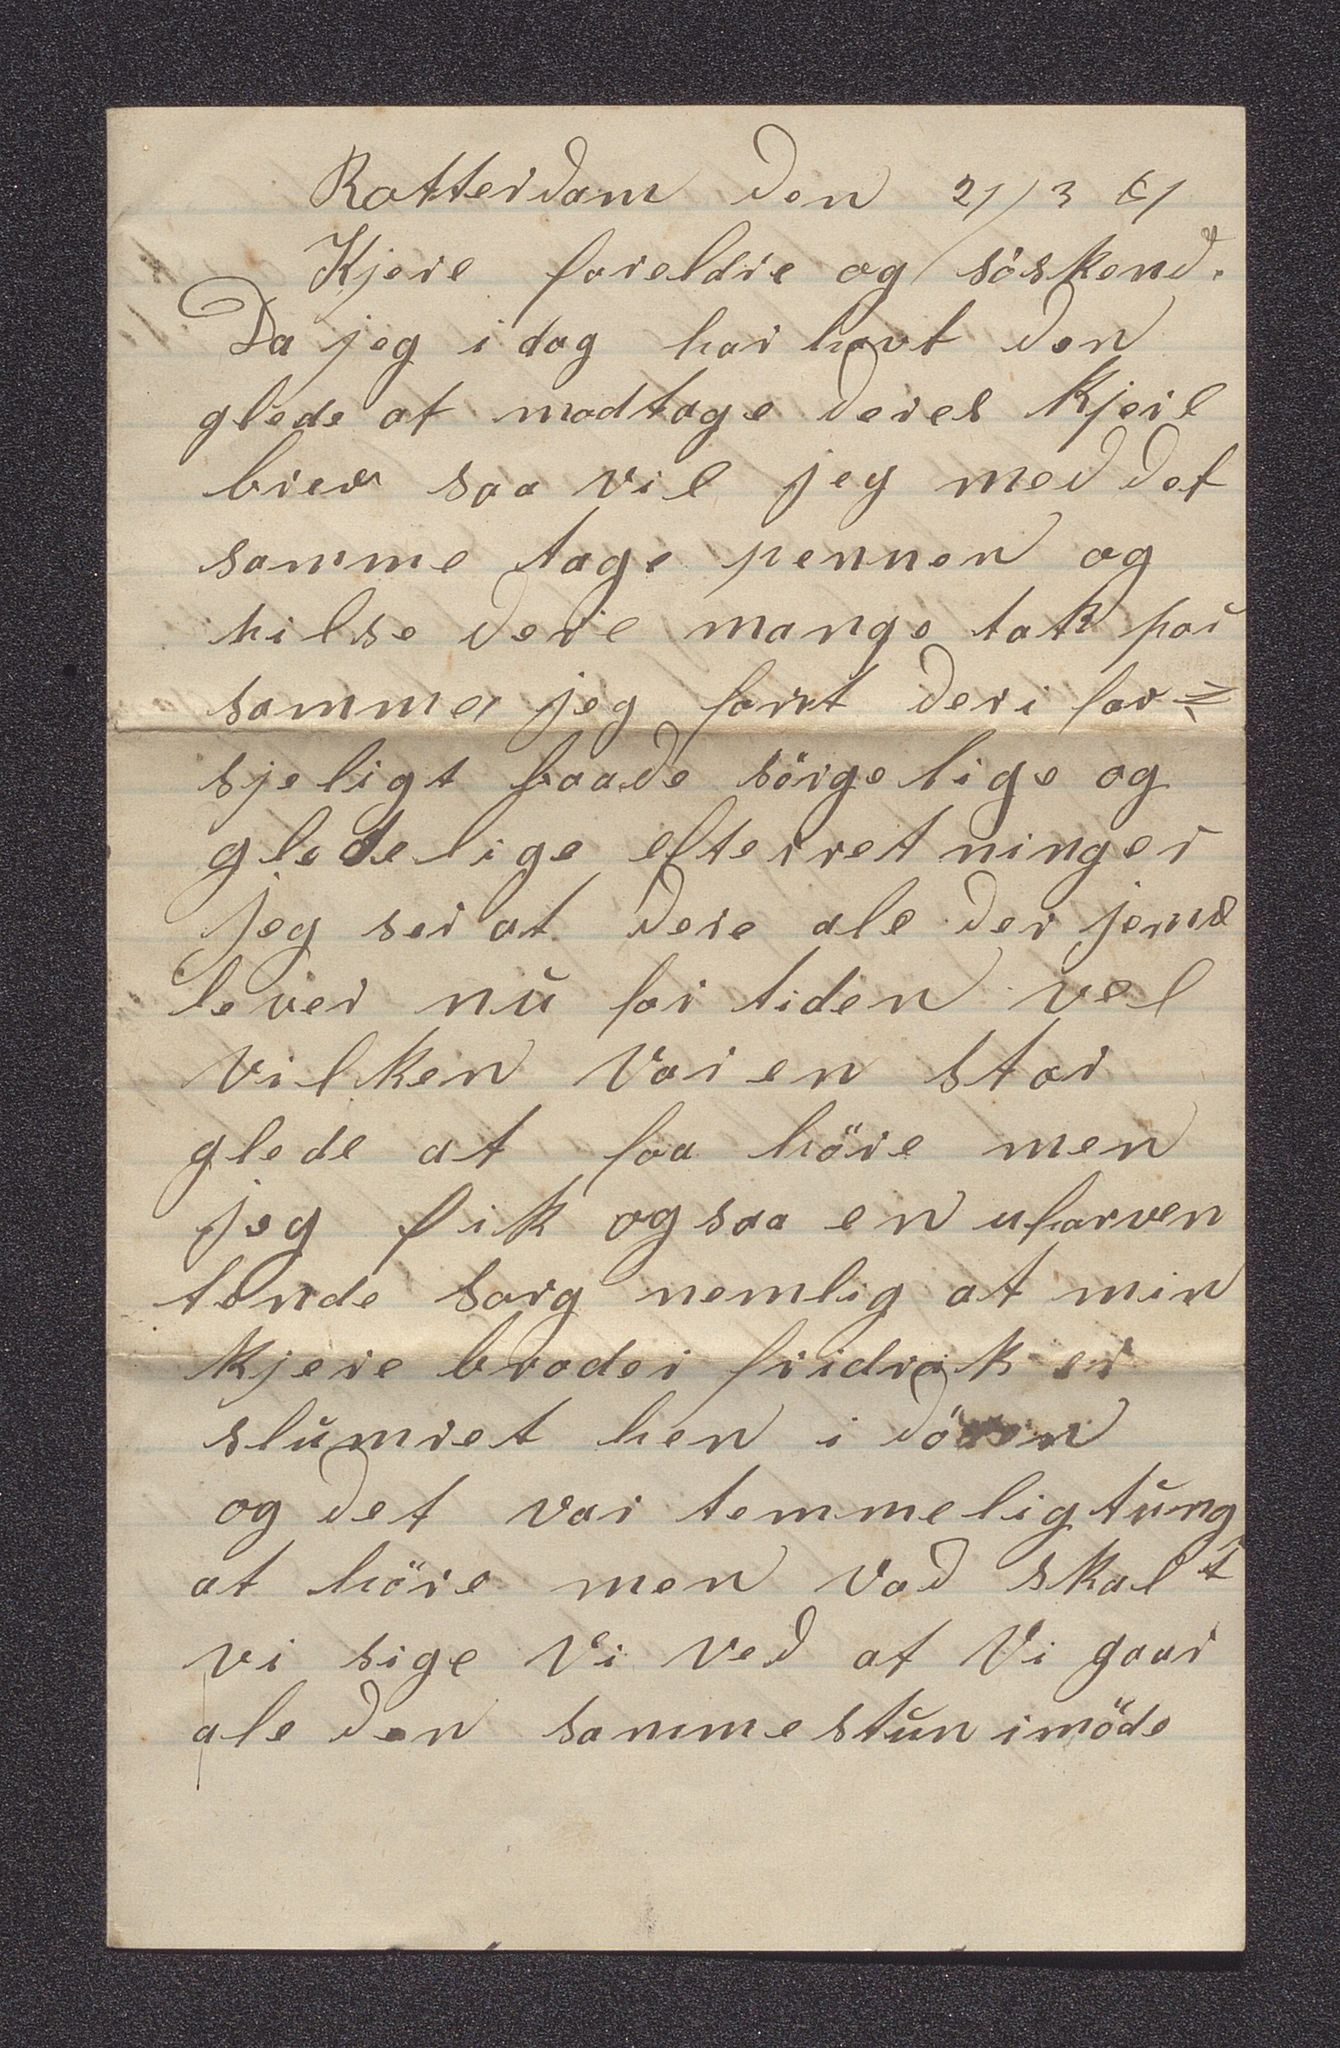 Rotterdam den 21/3 61
Kjere foreldre og söskend.
Da jeg i dag har havt den
glede at modtage deres Kjere
brev saa vil jeg med det
samme tage pennen og
hilse dere mange tak for
samme jeg fant deri for=
sjeligt baade sörgelige og
gledelige efterretninger
jeg ser at dere ale der jeme
lever nu for tiden vel
vilken var en stor
glede at faa höre men
jeg fik ogsaa en uforven
tende sorg nemlig at min
kjere broder fridrik er
slumret hen i döden
og det var temmelig tung
at höre men vad skal t
vi sige vi ved at vi gaar
ale den samme stun imöde